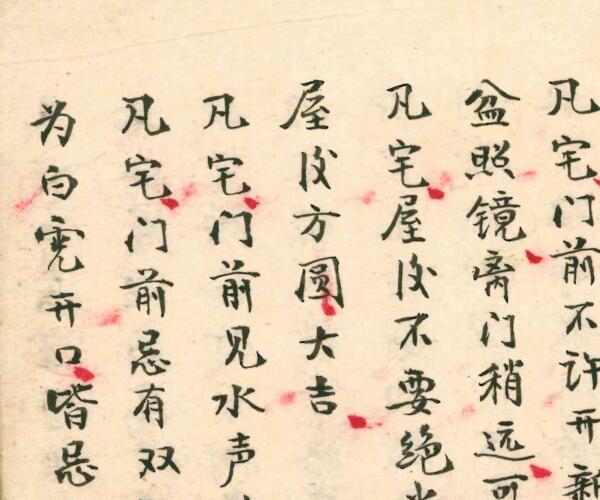 凡宅门前不许开新
盆照镜离门稍远可
凡宅屋后不要绝
屋后方圆大吉
凡宅门前见水声
凡宅门前忌有双
为白虎开口皆忌